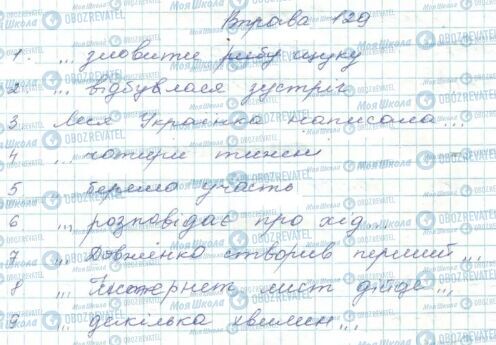 Вправа 129
1. ... зловити рибу щуку
2 ... відбулася зустріч
3 Леся Українка написала...
4 ... чотири тижні
5 беремо участь
6 ... розповідає про хід...
7 ... Довженко створив перший...
8 ... Інтернет лист дійде...
9 ... декілька хвилин...